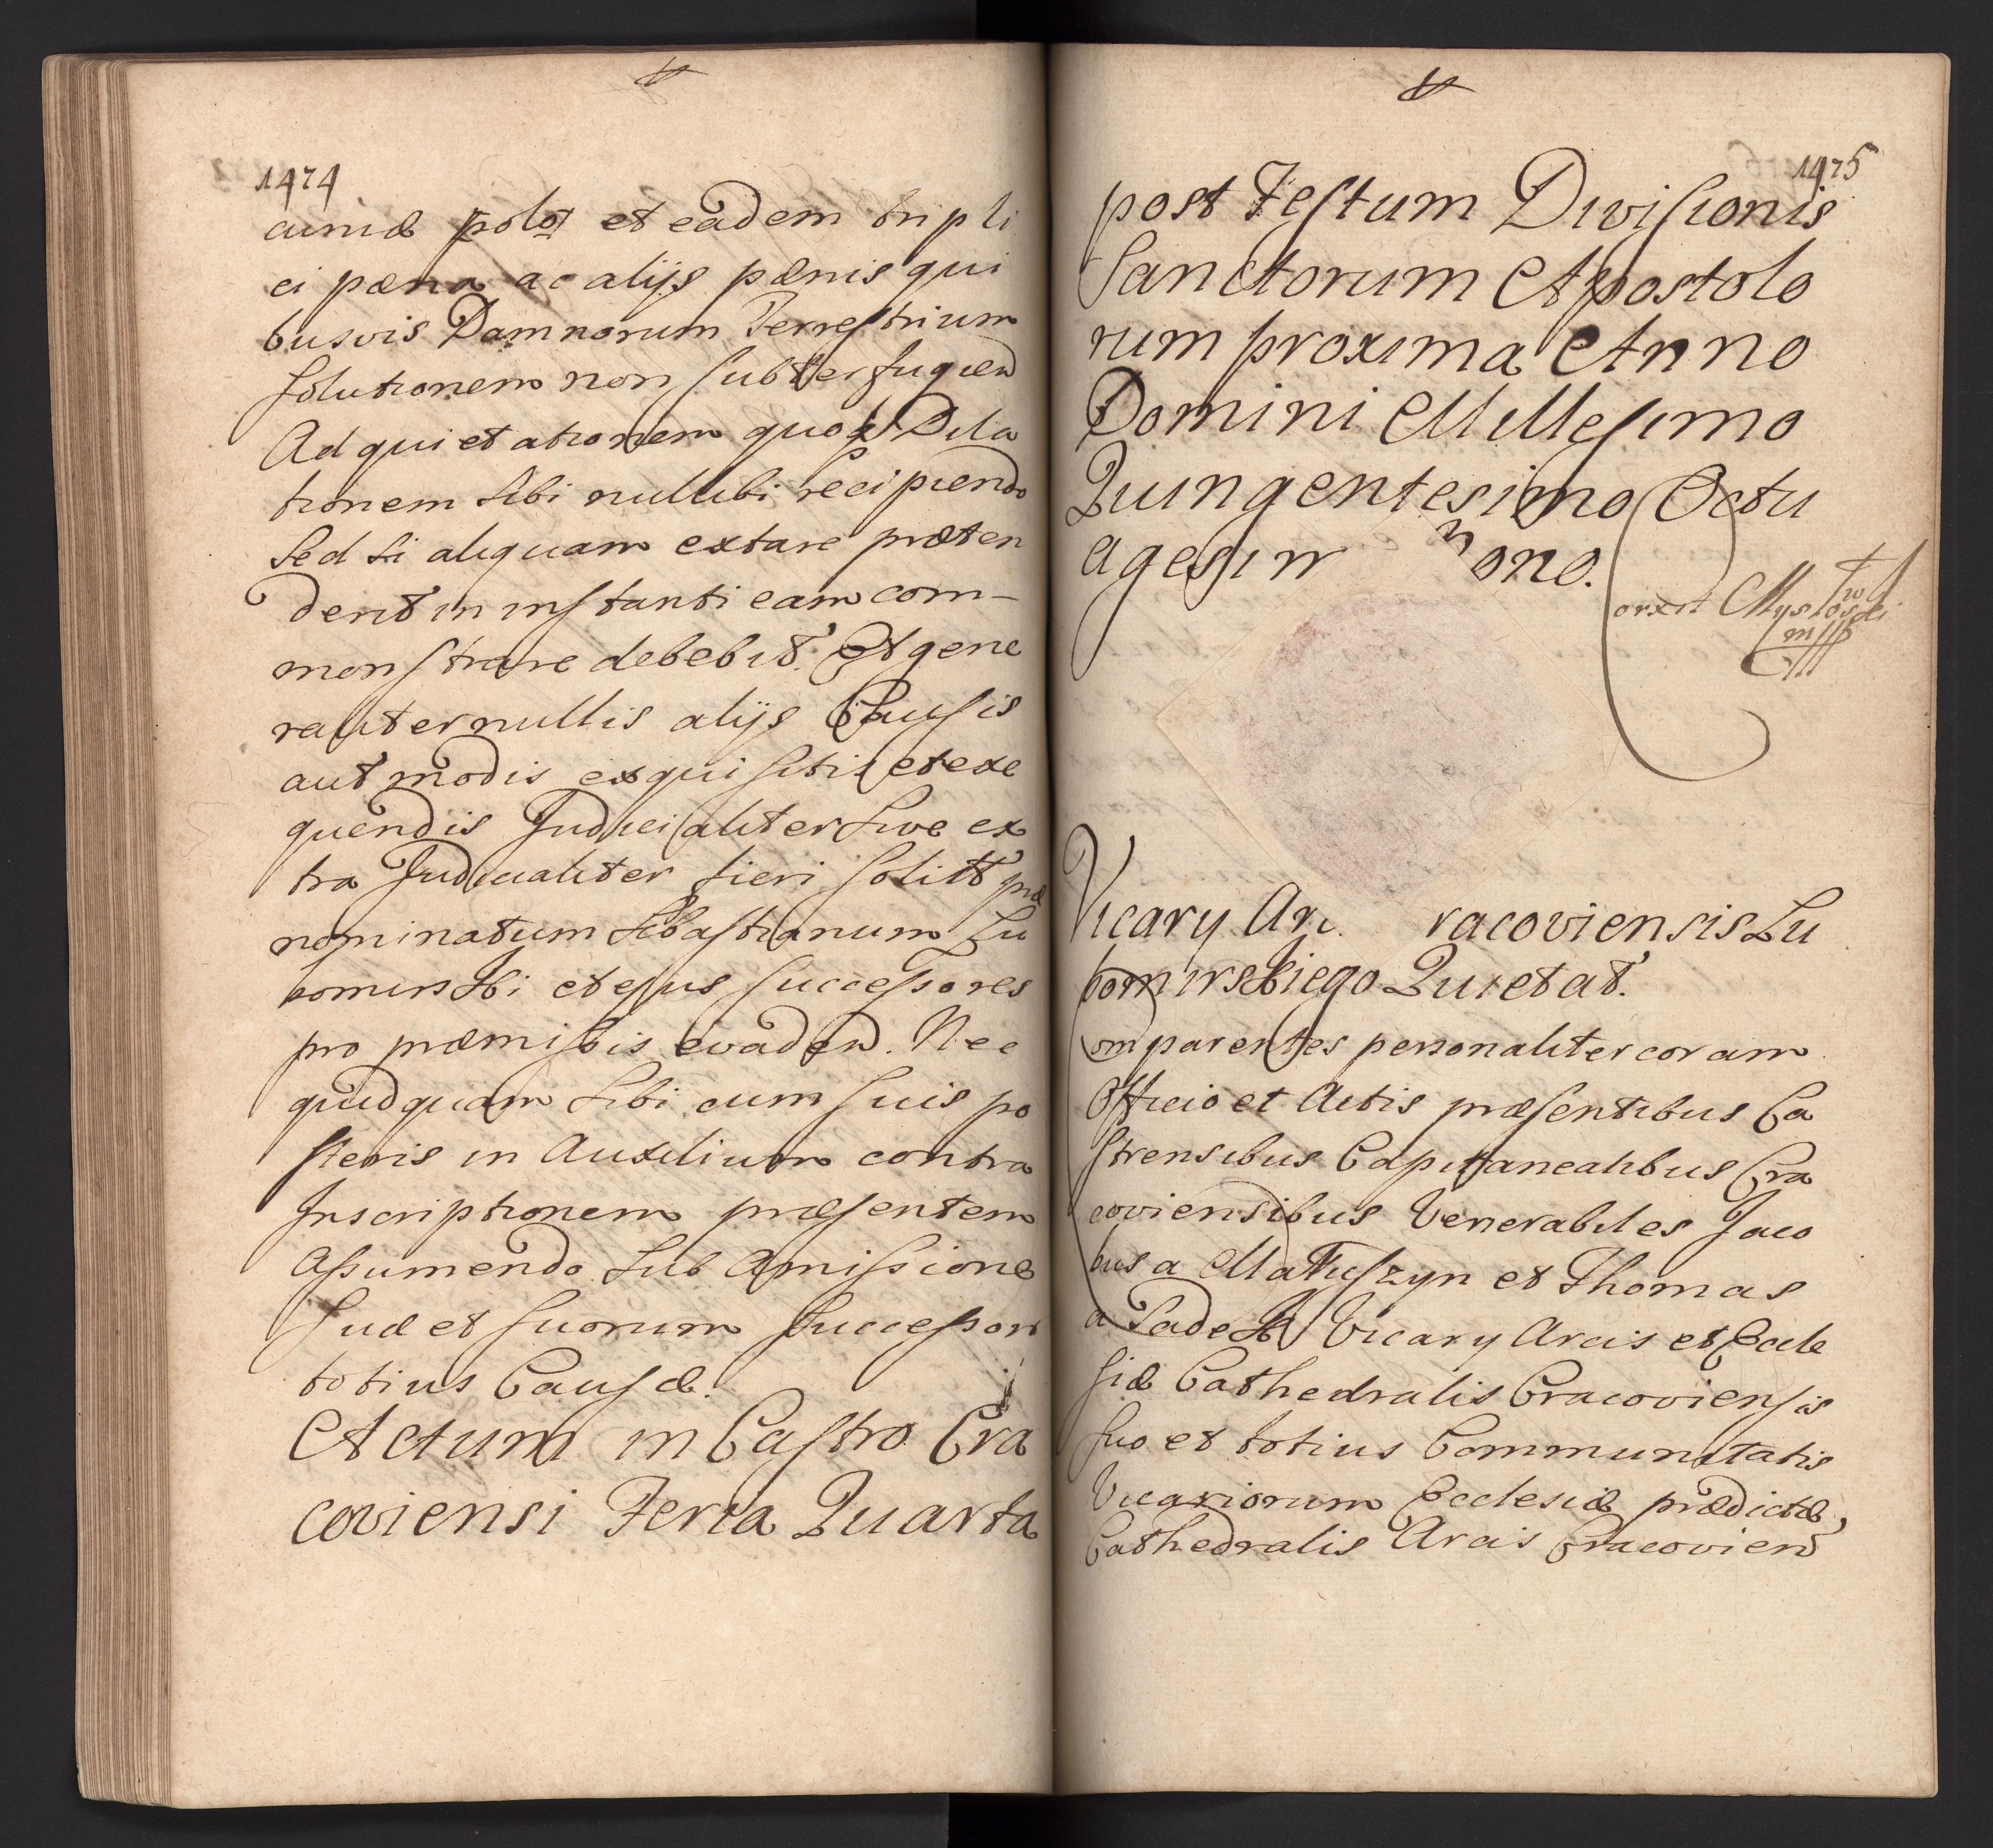 1474
cuniæ polot et eadem tripli
ci pæna ac alijs pænis qui
busvis Damnorum Terrestrium
solutionem non subterfugien
Ad quietationem quoq Dila
tionem sibi nullibi recipiendo
Sed si aliquam extare præten
derit in instanti eam com-
monstrare debebit. Et gene
raliter nullis alijs Causis
aut modis exquisitis et exe
quendis Judicialiter sive ex
tra Judicialiter fieri solitt præ
nominatum Sebastianum Lu
bomirski et ejus successores
pro præmissis evaden. Nec
quidquam sibi cum suis po
steris in Auxilium contra
Inscriptionem præsentem
assumendo sub Amissione
suæ et suorum successor
totius Causæ.
Actum in Castro Cra
coviensi Feria Quarta
1475
post Festum Divisionis
Sanctorum Apostolo
rum proxima Anno
Domini Millesimo
Quingentesimo Octu
agesim nono.
Vicary Arc. racoviensis Lu
bomirskiego Quietat.
Comparentes personaliter coram
Officio et Actis præsentibus Ca
strensibus Capitanealibus Cra
coviensibus Venerabiles Jaco
bus a Matuszyn et Thomas
a Sadek Vicary Arcis et Eccle
siæ Cathedralis Cracoviensis
suo et totius Communitatis
Vicariorum Ecclesiæ prædictæ
Cathedralis Arcis Cracovien